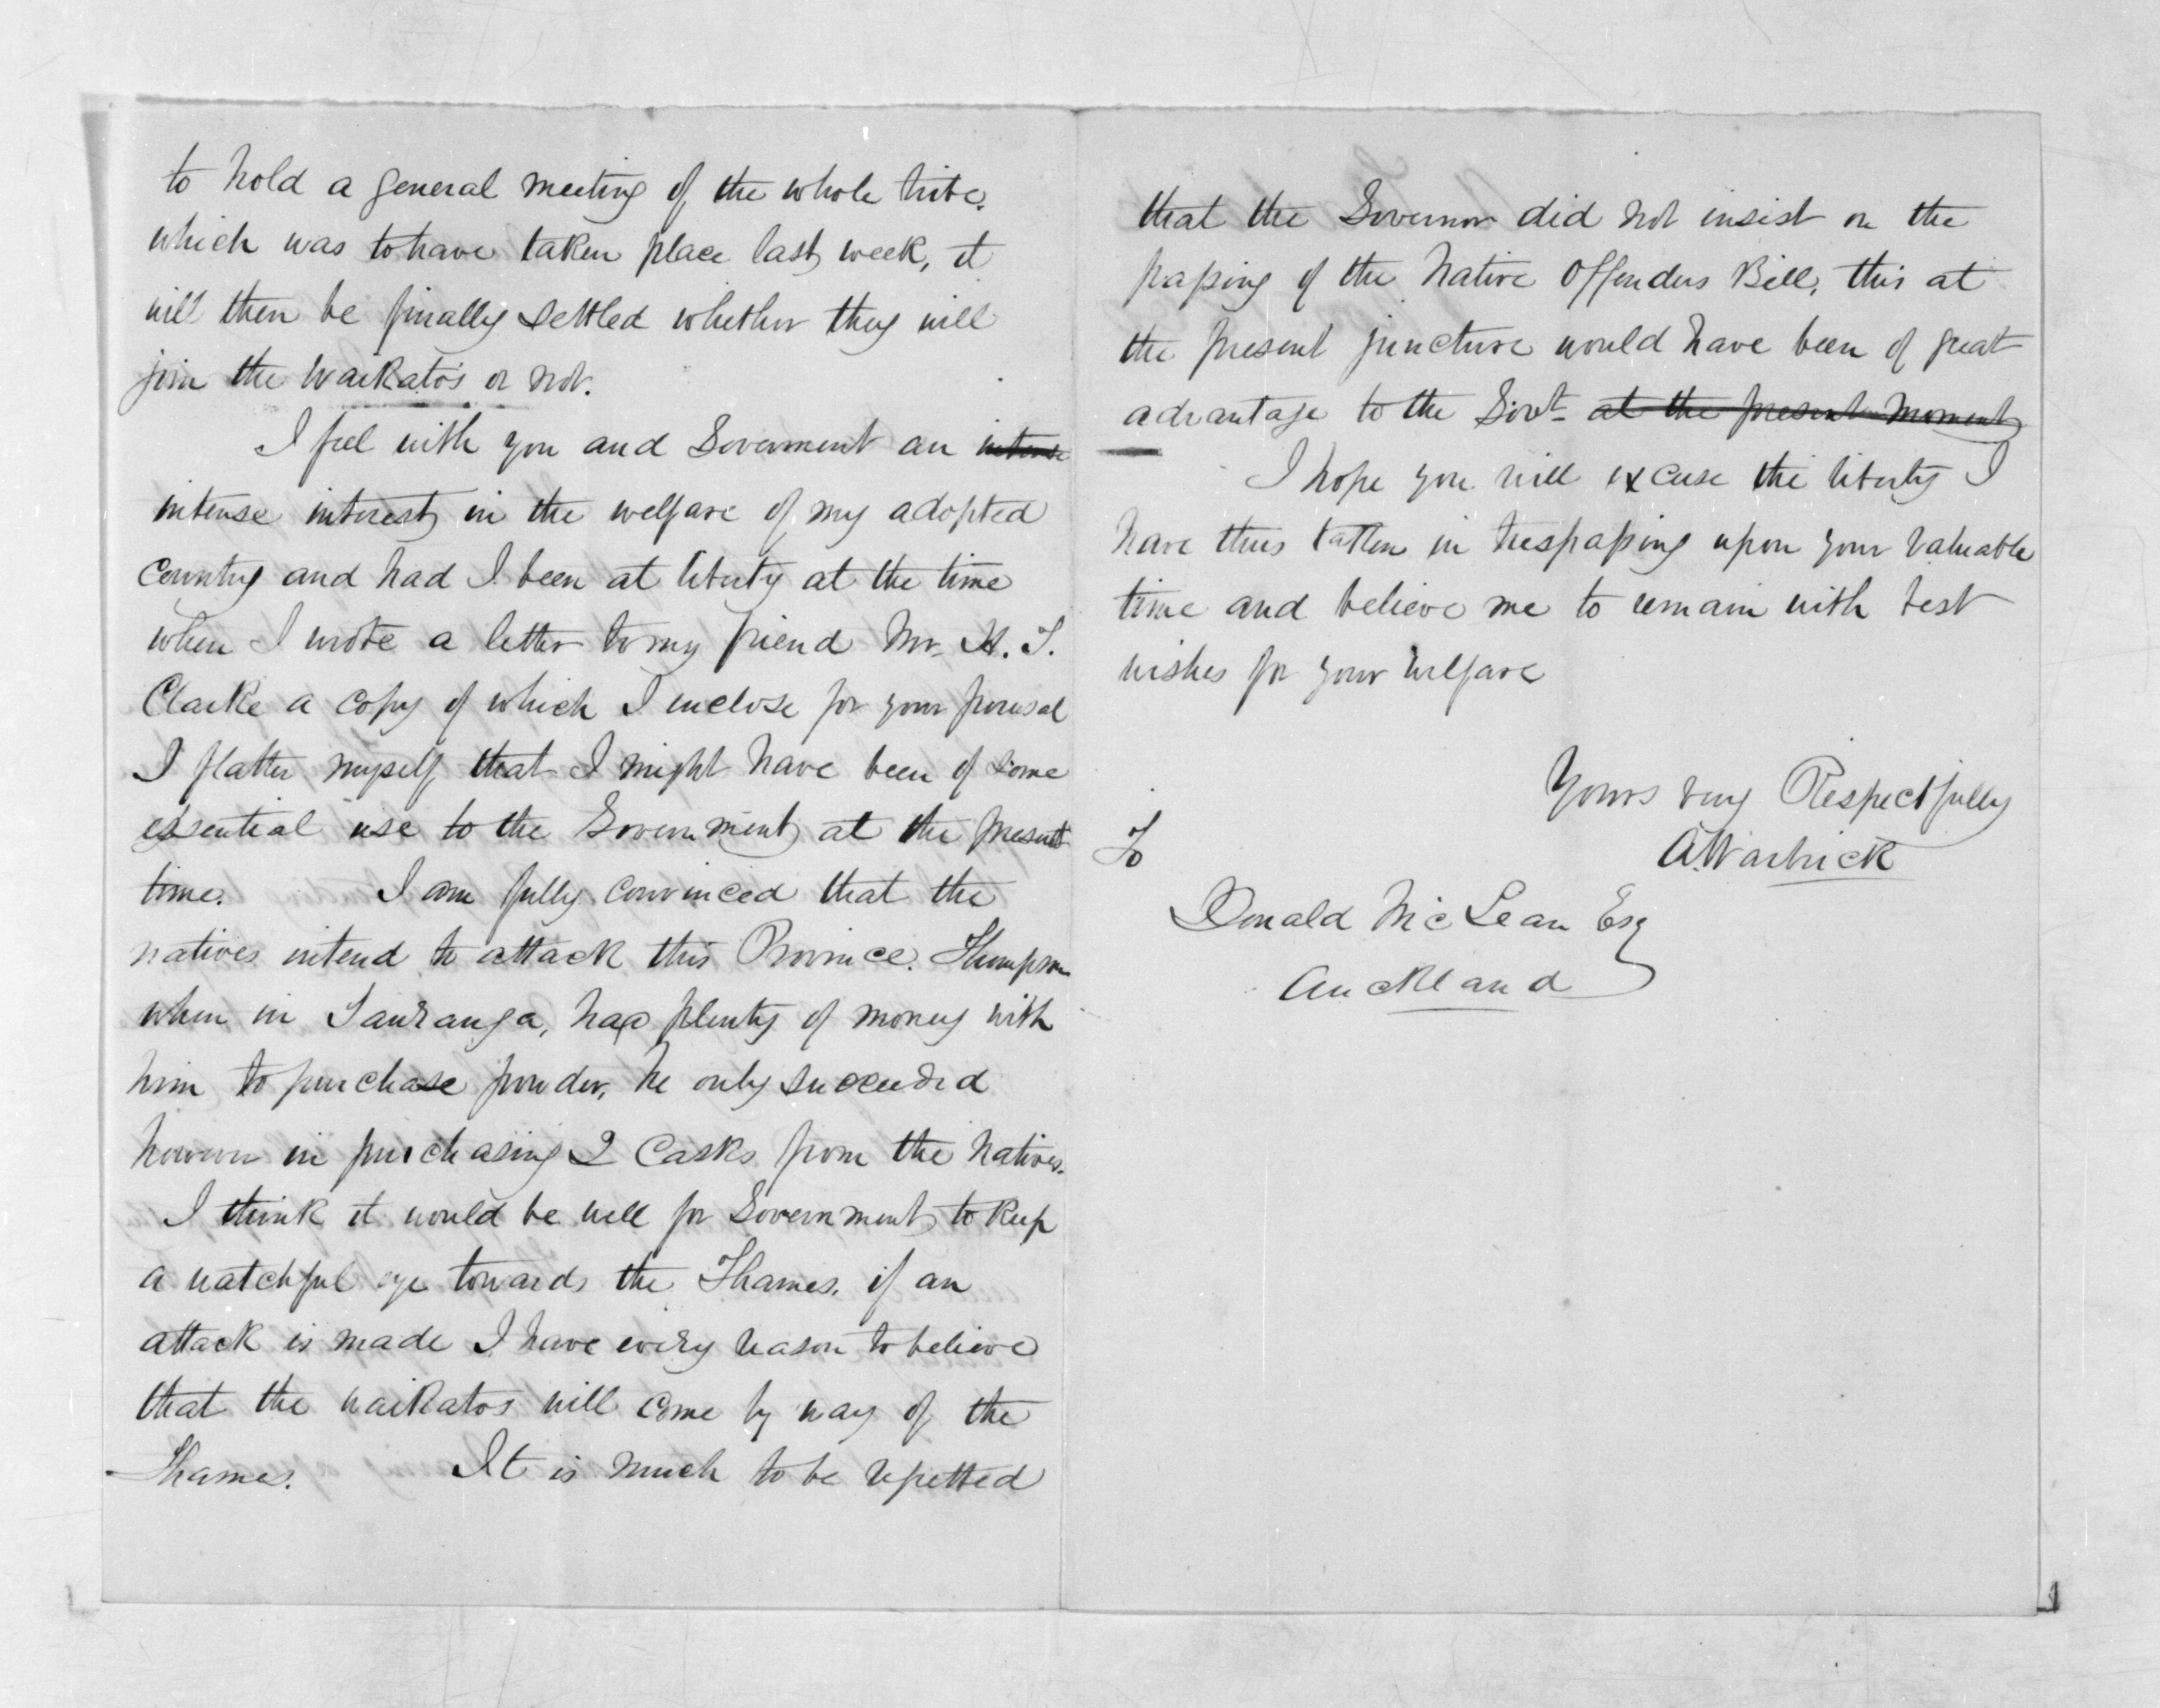 to hold a general meeting of the whole tribe.
which was to have taken place last week, it
will then be finally settled whether they will
join the Waikato's or not.
I feel with you and Goverment an intense
intense interest in the welfare of my adopted
Country and had I been at liberty at the time
when I wrote a letter to my friend Mr. H. T.
Clarke a copy of which I enclose for your perusal
I flatter myself that I might have been of some
essential use to the Government at the present
time. I am fully convinced that the
natives intend to attack this Province. Thompson
when in Tauranga, had plenty of money with
him to purchase powder, he only succeeded
however in purchasing 2 Casks from the Natives.
I think it would be well for Government to keep
a watchful eye towards the Thames. if an
attack is made I have every reason to believe
that the waikatos will come by way of the
Thames. It is much to be regretted
that the Governor did not insist on the
passing of the Native Offenders Bill, this at
the present juncture would have been of great
advantage to the Govt at the present moment
I hope you will excuse the liberty I
have thus taken in trespassing upon your valuable
time and believe me to remain with best
wishes for your welfare
Yours very Respectfully
A Warbrick
To
Donald McLean Esq
Auckland